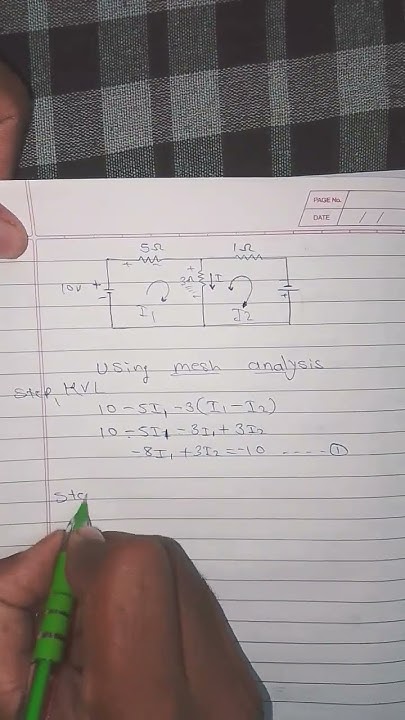 PAGE No.
DATE / /
5Ω 1Ω
+ -
10V + - 3Ω + - I +
I1 I2
Using mesh analysis
Step1 KVL
10-5I1-3(I1-I2)
10-5I1-3I1+3I2
-8I1+3I2=-10 ----- ①
Ste